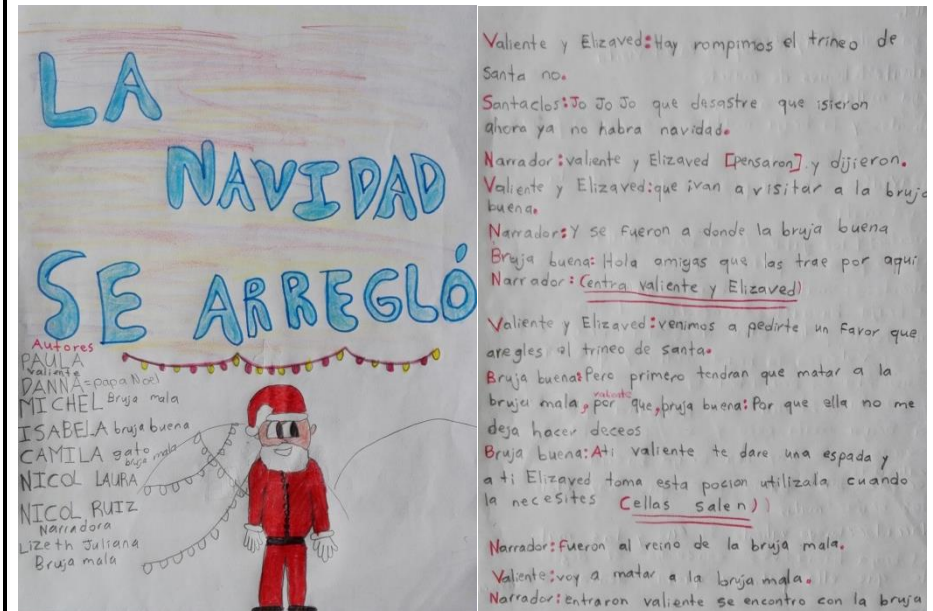 LA
NAVIDAD
SE ARREGLÓ
Autores
PAULA
valiente
DANNA=papa Noel
MICHEL Bruja mala
ISABELA bruja buena
CAMILA gato
bruja mala
NICOL LAURA
NICOL RUIZ
Narradora
Lizeth Juliana
Bruja mala
Valiente y Elizaved:Hay rompimos el trineo de
Santa no.
Santaclos:Jo Jo Jo que desastre que isieron
ahora ya no habra navidad.
Narrador:valiente y Elizaved [pensaron] y dijieron.
Valiente y Elizaved:que ivan a visitar a la bruja
buena.
Narrador:Y se fueron a donde la bruja buena
Bruja buena:Hola amigas que las trae por aqui
Narrador:(entra valiente y Elizaved)
Valiente y Elizaved:venimos a pedirte un favor que
aregles el trineo de santa.
Bruja buena:Pero primero tendran que matar a la
bruja mala, valiente por que, bruja buena:Por que ella no me
deja hacer deceos
Bruja buena:Ati valiente te dare una espada y
a ti Elizaved toma esta pocion utilizala cuando
la necesites (ellas salen)
Narrador:Fueron al reino de la bruja mala.
Valiente:voy a matar a la bruja mala.
Narrador:entraron valiente se encontro con la bruja